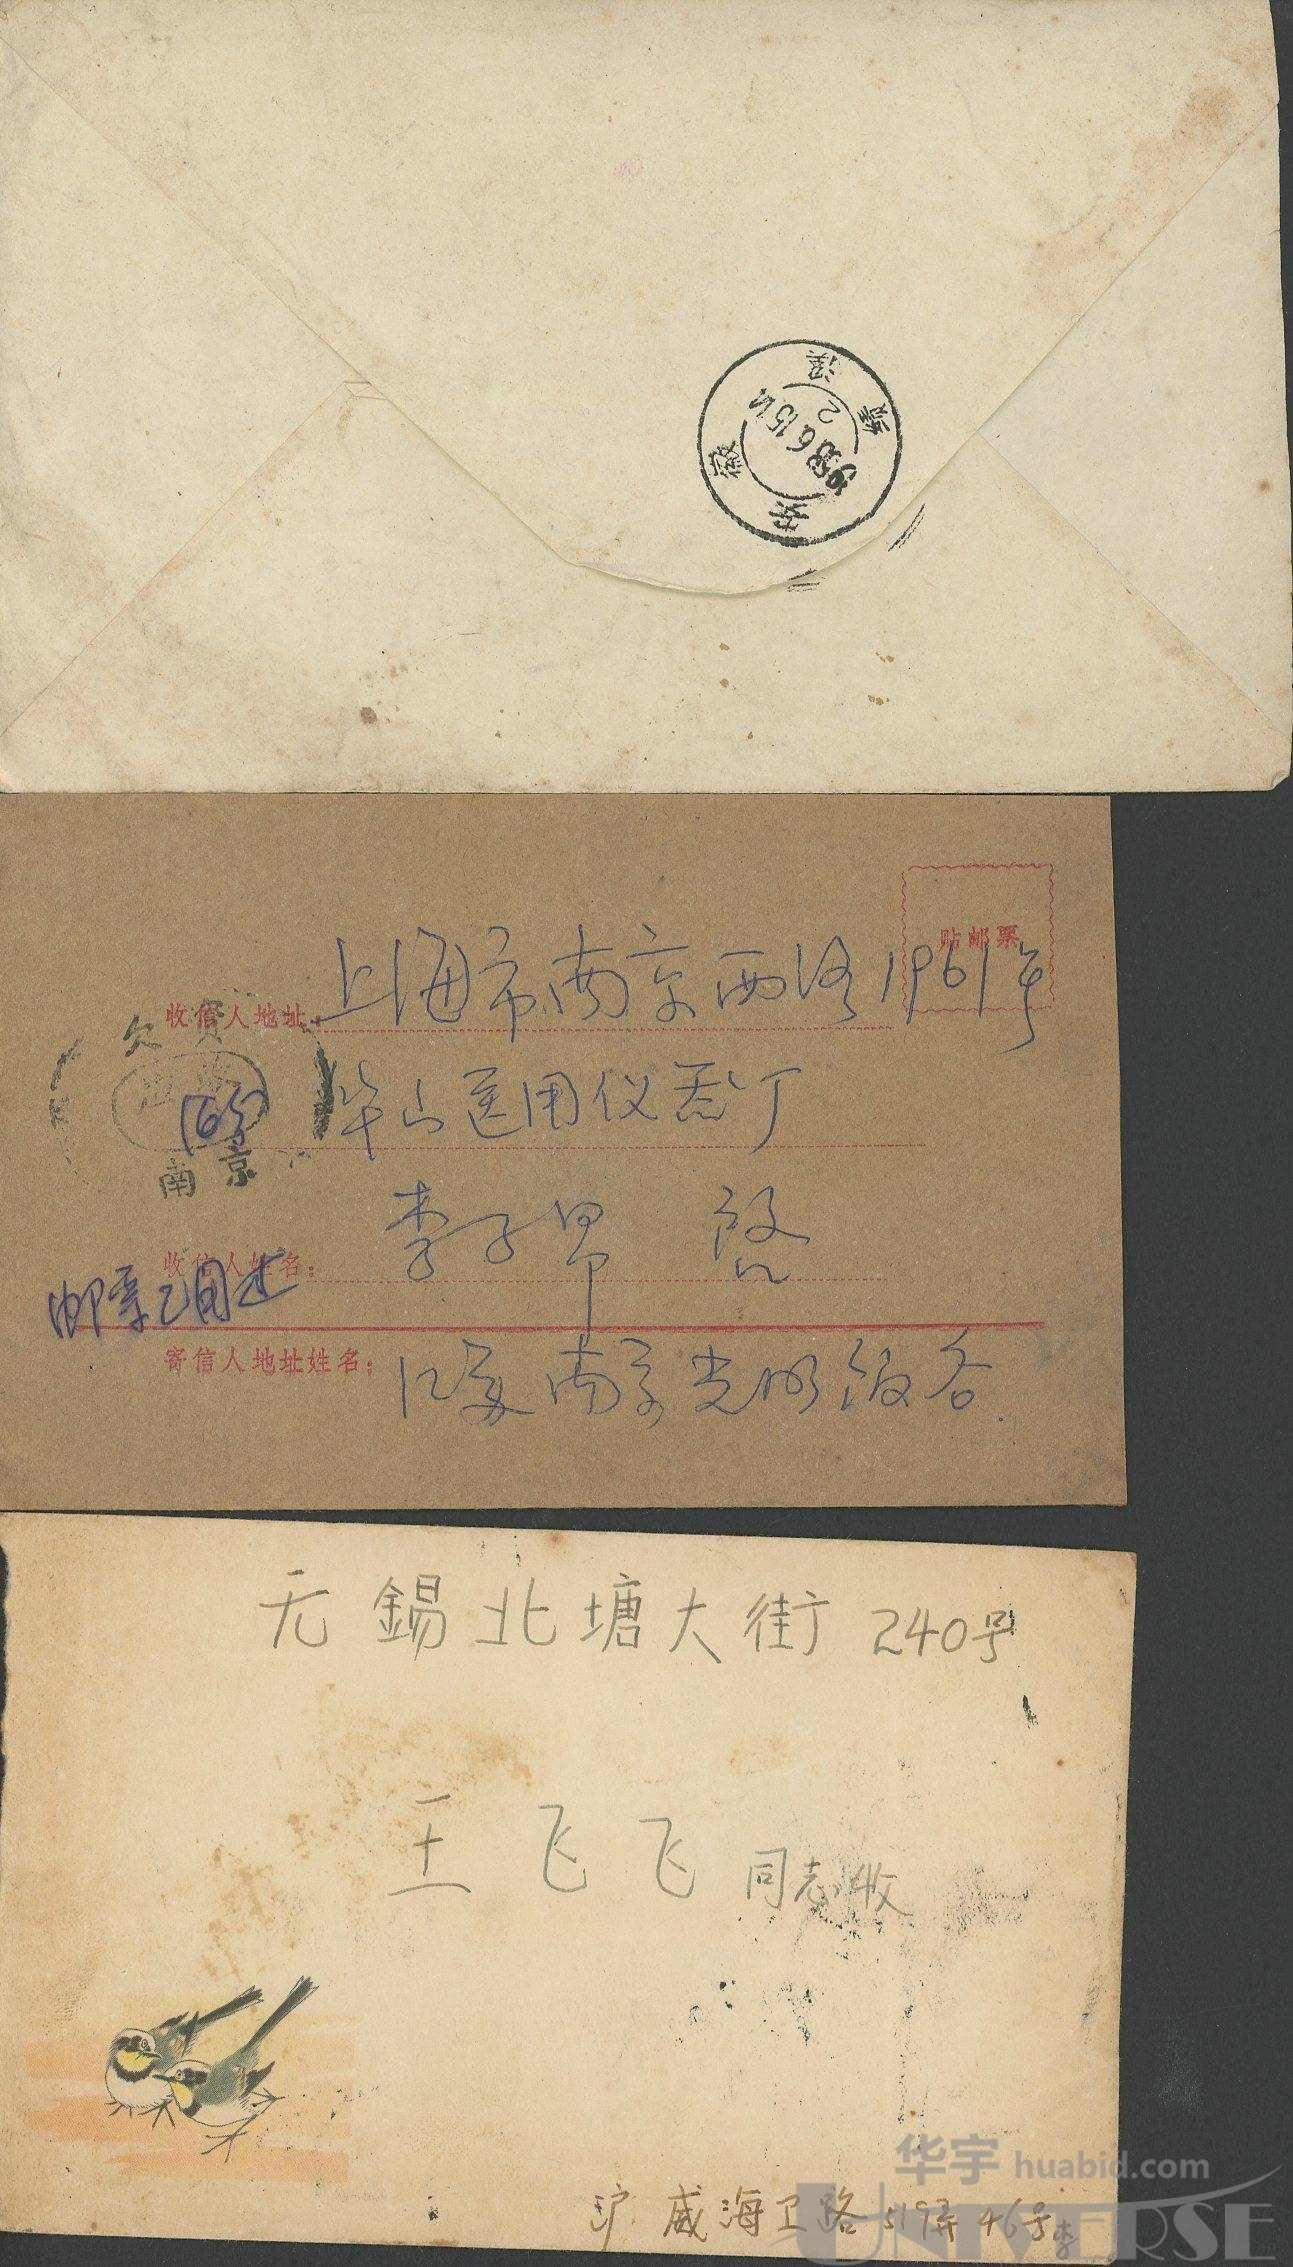 安徽
绩溪
1958.6.15.14
2
贴邮票
收信人地址:
上海市南京西路1961号
华山医用仪器厂
欠资
16分
南京
收信人姓名:
李子昂 启
邮票已用过
寄信人地址姓名:
江苏南京光明饭店
无錫北塘大街 240号
王飞飞 同志收
沪威海卫路 519弄46号李
华宇 huabid.com
UNIVERSE